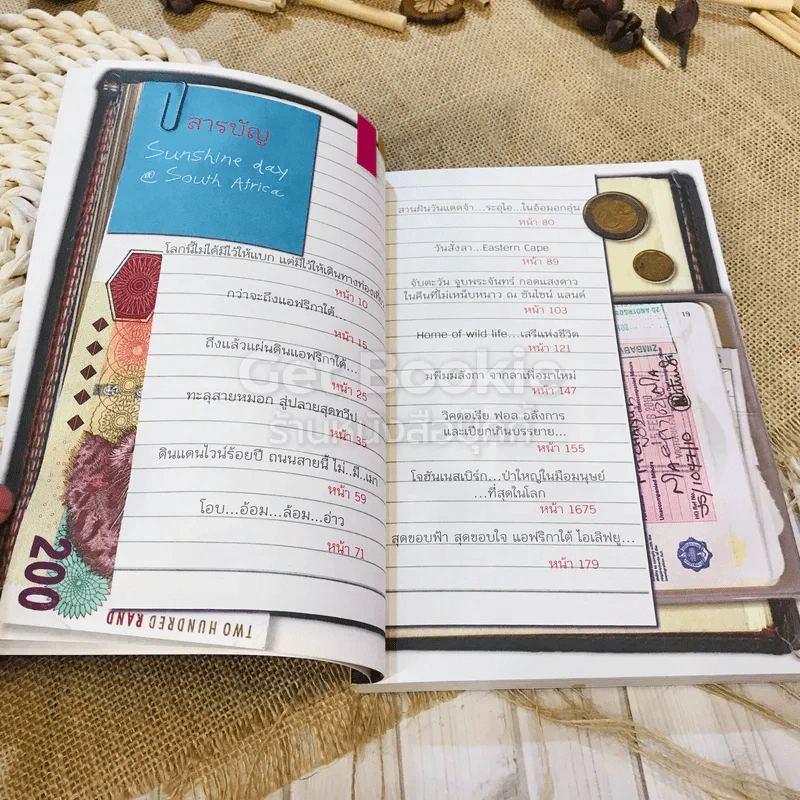 สารบัญ
Sunshine day
@ South Africa
โลกนี้ไม่ได้มีไว้ให้แบก แต่มีไว้ให้เดินทางท่องเที่ยว
หน้า 10
กว่าจะถึงแอฟริกาใต้...
หน้า 15
ถึงแล้วแผ่นดินแอฟริกาใต้...
หน้า 25
ทะลุสายหมอก สู่ปลายสุดทวีป
หน้า 35
ดินแดนไวน์ร้อยปี ถนนสายนี้ ไม่..มี..เมา
หน้า 59
โอบ...อ้อม...ล้อม...อ่าว
หน้า 71
200
TWO HUNDRED RAND
สานฝันวันแดดจ้า...ระอุไอ...ในอ้อมอกอุ่น
หน้า 80
วันสังลา...Eastern Cape
หน้า 89
จับตะวัน จูบพระจันทร์ กอดแสงดาว
ในคืนที่ไม่เหน็บหนาว ณ ซันไซน์ แลนด์
หน้า 103
Home of wild life...เสรีแห่งชีวิต
หน้า 121
มพึมมลังกา จากลาเพื่อมาใหม่
หน้า 147
วิคตอเรีย ฟอล อลังการ
และเปียกเกินบรรยาย...
หน้า 155
โจฮันเนสเบิร์ก...ป่าใหญ่ในมือมนุษย์
...ที่สุดในโลก
หน้า 1675
สุดขอบฟ้า สุดขอบใจ แอฟริกาใต้ ไอเลิฟยู...
หน้า 179
19
Get Bookie